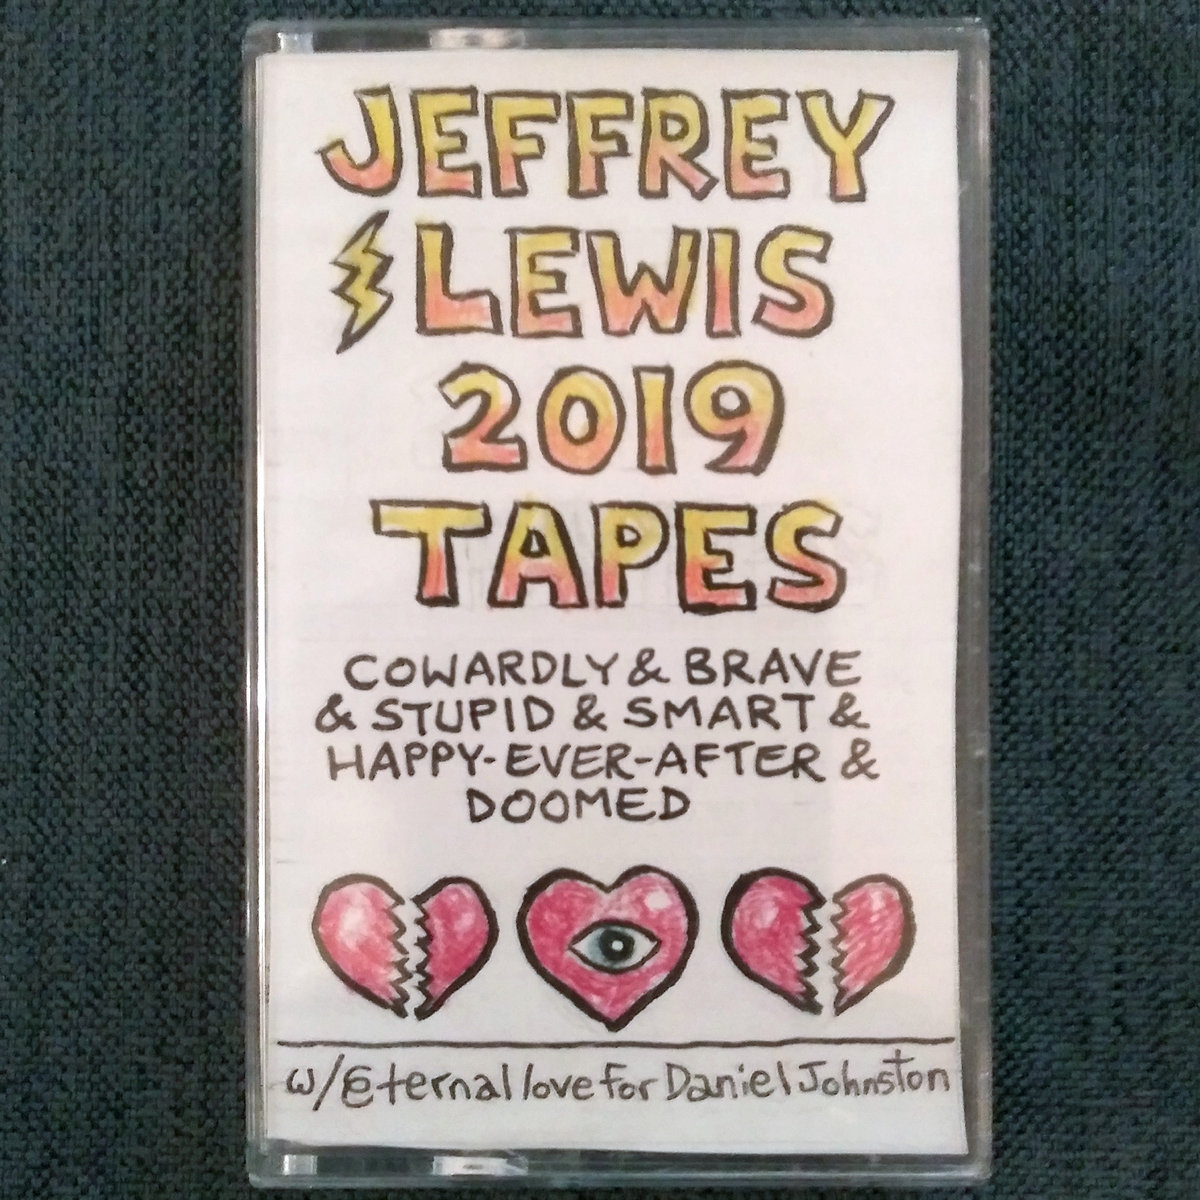 JEFFREY
LEWIS
2019
TAPES
COWARDLY & BRAVE
& STUPID & SMART &
HAPPY-EVER-AFTER &
DOOMED
w/Eternal love for Daniel Johnston